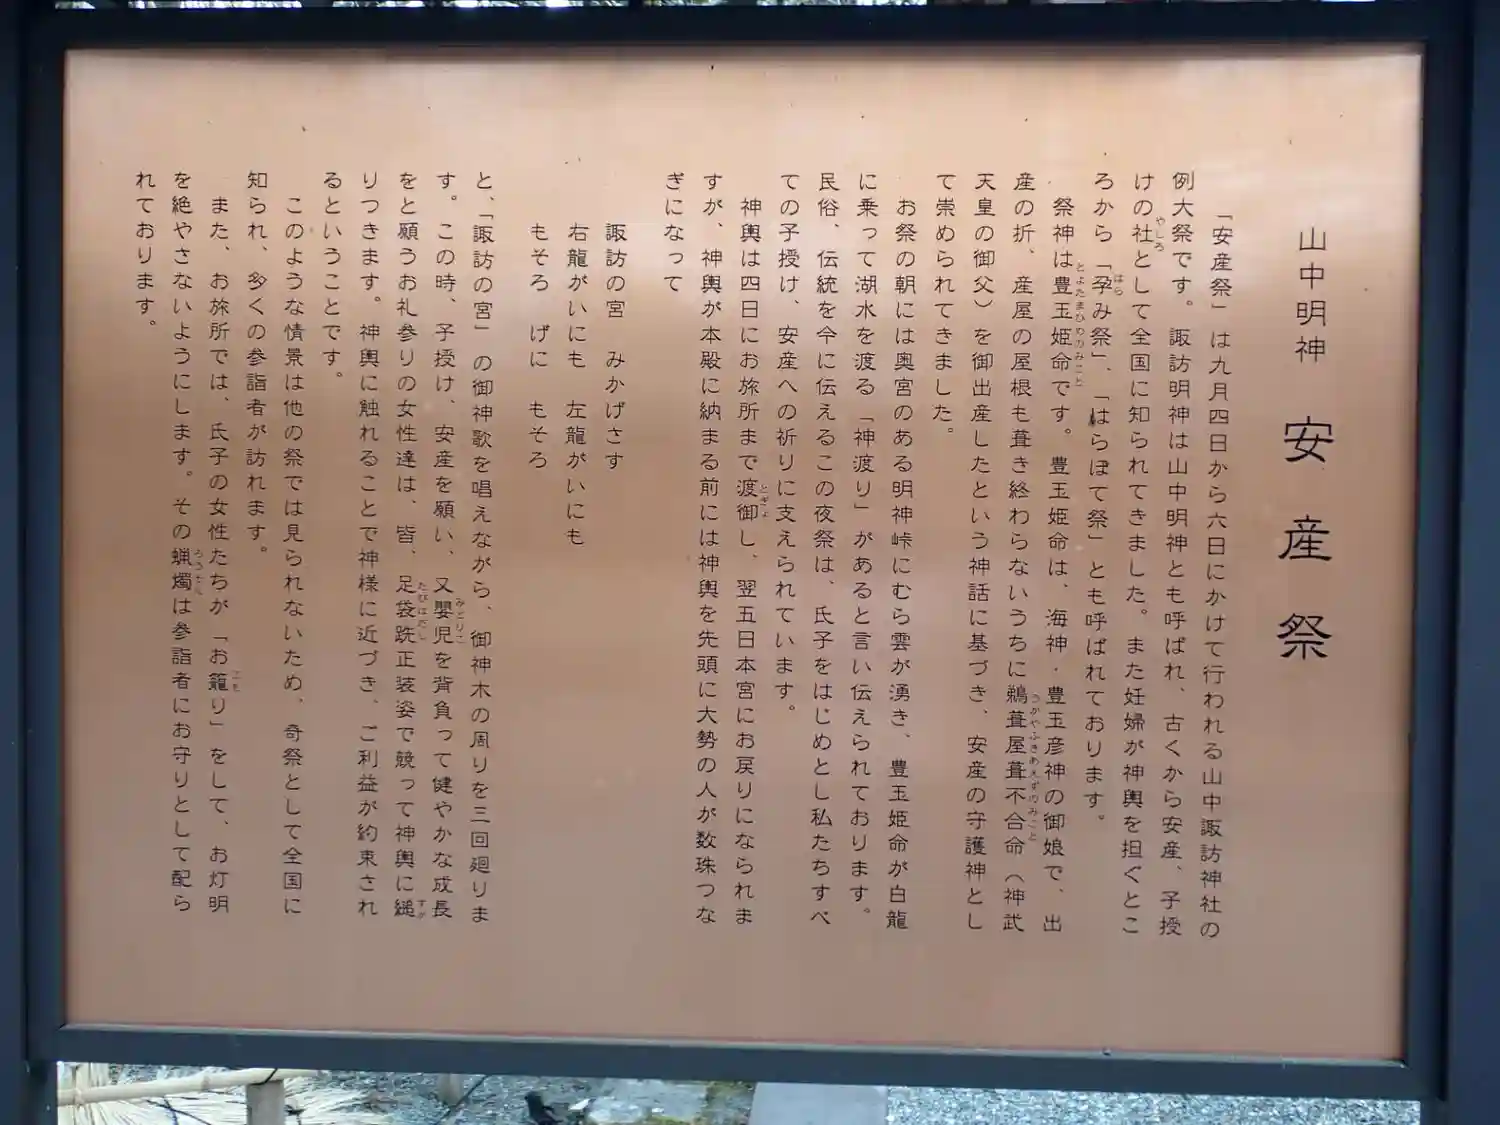 山中明神 安産祭
「安産祭」は九月四日から六日にかけて行われる山中諏訪神社の
例大祭です。諏訪明神は山中明神とも呼ばれ、古くから安産、子授
けの社として全国に知られてきました。また妊婦が神輿を担ぐとこ
ろから「孕み祭」、「はらぼて祭」とも呼ばれております。
祭神は豊玉姫命です。豊玉姫命は、海神・豊玉彦神の御娘で、出
産の折、産屋の屋根も葺き終わらないうちに鵜葺屋葺不合命（神武
天皇の御父）を御出産したという神話に基づき、安産の守護神とし
て崇められてきました。
お祭の朝には奥宮のある明神峠にむら雲が湧き、豊玉姫命が白龍
に乗って湖水を渡る「神渡り」があると言い伝えられております。
民俗、伝統を今に伝えるこの夜祭は、氏子をはじめとし私たちすべ
ての子授け、安産への祈りに支えられています。
神輿は四日にお旅所まで渡御し、翌五日本宮にお戻りになられま
すが、神輿が本殿に納まる前には神輿を先頭に大勢の人が数珠つな
ぎになって
諏訪の宮 みかげさす
右龍がいにも 左龍がいにも
もそろ げに もそろ
と、「諏訪の宮」の御神歌を唱えながら、御神木の周りを三回廻りま
す。この時、子授け、安産を願い、又嬰児を背負って健やかな成長
をと願うお礼参りの女性達は、皆、足袋跣正装姿で競って神輿に縋
りつきます。神輿に触れることで神様に近づき、ご利益が約束され
るということです。
このような情景は他の祭では見られないため、奇祭として全国に
知られ、多くの参詣者が訪れます。
また、お旅所では、氏子の女性たちが「お籠り」をして、お灯明
を絶やさないようにします。その蝋燭は参詣者にお守りとして配ら
れております。